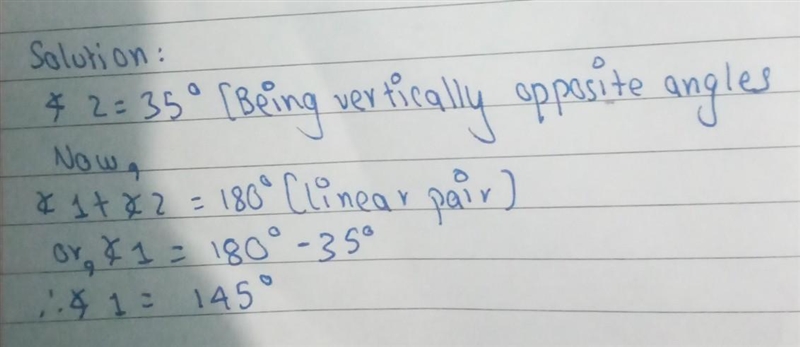 Solution:
∡ 2 = 35° [Being vertically opposite angles
Now,
∡ 1 + ∡ 2 = 180° (linear pair)
or, ∡ 1 = 180° - 35°
∴ ∡ 1 = 145°